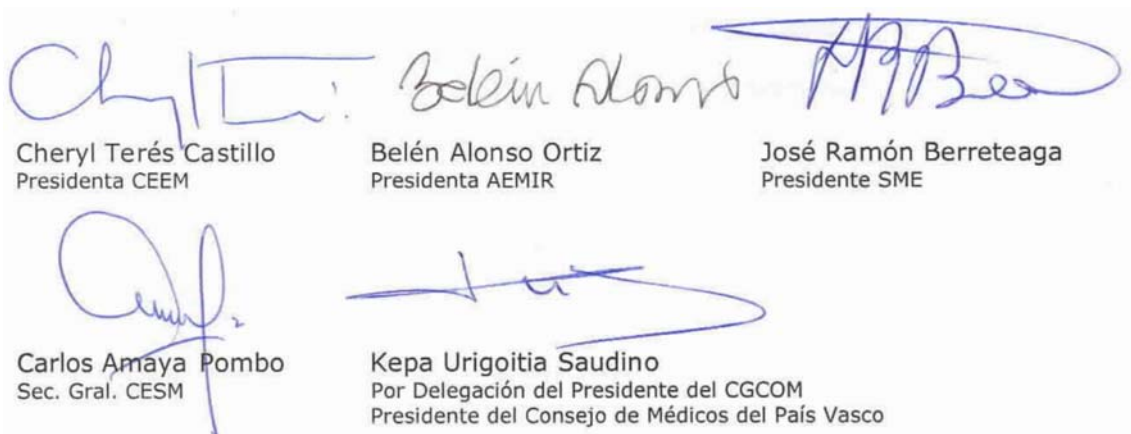 Belén Alonso
Cheryl Terés Castillo
Presidenta CEEM
Belén Alonso Ortiz
Presidenta AEMIR
José Ramón Berreteaga
Presidente SME
Carlos Amaya Pombo
Sec. Gral. CESM
Kepa Urigoitia Saudino
Por Delegación del Presidente del CGCOM
Presidente del Consejo de Médicos del País Vasco